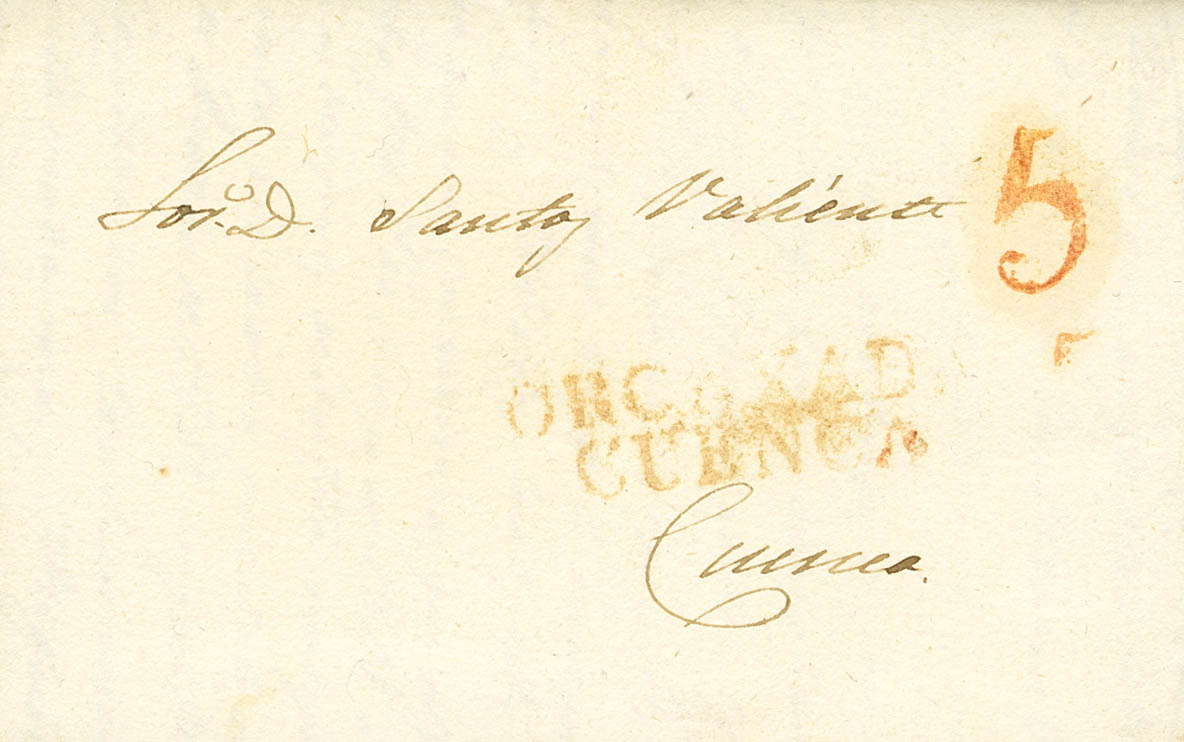 Sor. D. Santos Valiente
5
ORCAXAD.
CUENCA
Cuenca.